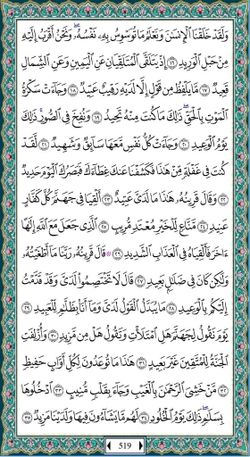 وَلَقَدْ خَلَقْنَا ٱلْإِنسَٰنَ وَنَعْلَمُ مَا تُوَسْوِسُ بِهِۦ نَفْسُهُۥ ۖ وَنَحْنُ أَقْرَبُ إِلَيْهِ
مِنْ حَبْلِ ٱلْوَرِيدِ ١٦ إِذْ يَتَلَقَّى ٱلْمُتَلَقِّيَانِ عَنِ ٱلْيَمِينِ وَعَنِ ٱلشِّمَالِ
قَعِيدٌ ١٧ مَّا يَلْفِظُ مِن قَوْلٍ إِلَّا لَدَيْهِ رَقِيبٌ عَتِيدٌ ١٨ وَجَآءَتْ سَكْرَةُ
ٱلْمَوْتِ بِٱلْحَقِّ ۖ ذَٰلِكَ مَا كُنتَ مِنْهُ تَحِيدُ ١٩ وَنُفِخَ فِى ٱلصُّورِ ۚ ذَٰلِكَ
يَوْمُ ٱلْوَعِيدِ ٢٠ وَجَآءَتْ كُلُّ نَفْسٍ مَّعَهَا سَآئِقٌ وَشَهِيدٌ ٢١ لَّقَدْ
كُنتَ فِى غَفْلَةٍ مِّنْ هَٰذَا فَكَشَفْنَا عَنكَ غِطَآءَكَ فَبَصَرُكَ ٱلْيَوْمَ حَدِيدٌ
٢٢ وَقَالَ قَرِينُهُۥ هَٰذَا مَا لَدَىَّ عَتِيدٌ ٢٣ أَلْقِيَا فِى جَهَنَّمَ كُلَّ كَفَّارٍ
عَنِيدٍ ٢٤ مَّنَّاعٍ لِّلْخَيْرِ مُعْتَدٍ مُّرِيبٍ ٢٥ ٱلَّذِى جَعَلَ مَعَ ٱللَّهِ إِلَٰهًا
ءَاخَرَ فَأَلْقِيَاهُ فِى ٱلْعَذَابِ ٱلشَّدِيدِ ٢٦ قَالَ قَرِينُهُۥ رَبَّنَا مَآ أَطْغَيْتُهُۥ
وَلَٰكِن كَانَ فِى ضَلَٰلٍۭ بَعِيدٍ ٢٧ قَالَ لَا تَخْتَصِمُوا۟ لَدَىَّ وَقَدْ قَدَّمْتُ
إِلَيْكُم بِٱلْوَعِيدِ ٢٨ مَا يُبَدَّلُ ٱلْقَوْلُ لَدَىَّ وَمَآ أَنَا۠ بِظَلَّٰمٍ لِّلْعَبِيدِ ٢٩
يَوْمَ نَقُولُ لِجَهَنَّمَ هَلِ ٱمْتَلَأْتِ وَتَقُولُ هَلْ مِن مَّزِيدٍ ٣٠ وَأُزْلِفَتِ
ٱلْجَنَّةُ لِلْمُتَّقِينَ غَيْرَ بَعِيدٍ ٣١ هَٰذَا مَا تُوعَدُونَ لِكُلِّ أَوَّابٍ حَفِيظٍ
٣٢ مَّنْ خَشِىَ ٱلرَّحْمَٰنَ بِٱلْغَيْبِ وَجَآءَ بِقَلْبٍ مُّنِيبٍ ٣٣ ٱدْخُلُوهَا
بِسَلَٰمٍ ۖ ذَٰلِكَ يَوْمُ ٱلْخُلُودِ ٣٤ لَهُم مَّا يَشَآءُونَ فِيهَا وَلَدَيْنَا مَزِيدٌ ٣٥
519